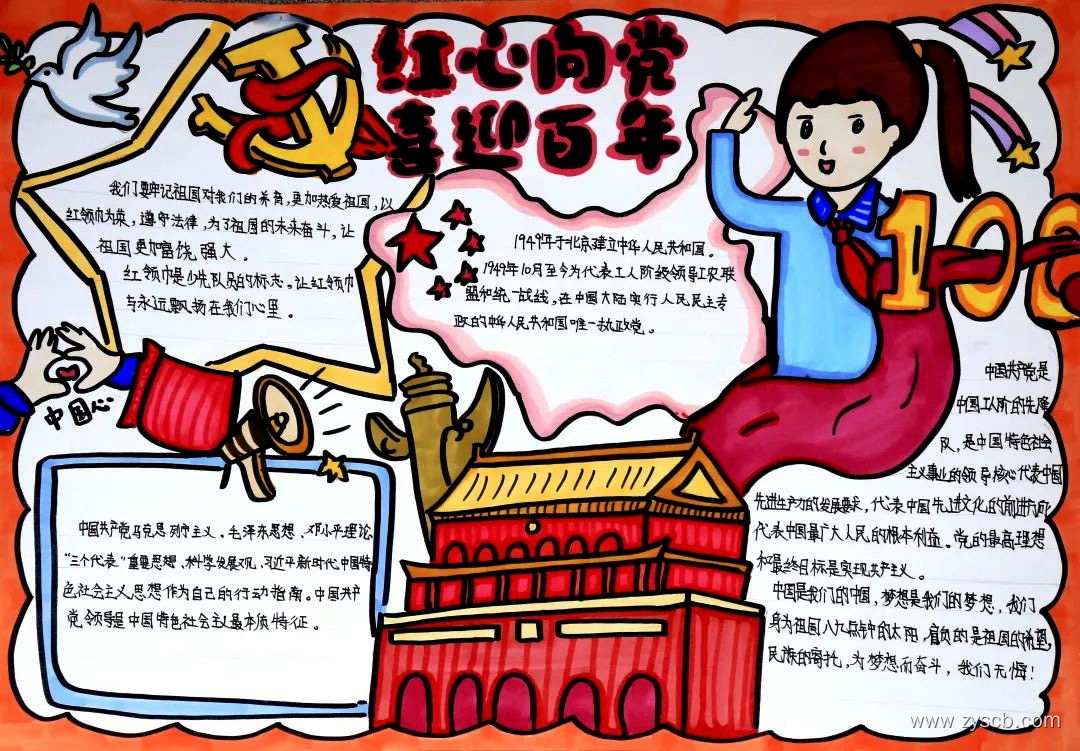 红心向党
喜迎百年
我们要牢记祖国对我们的养育,更加热爱祖国,以
红领巾为荣,遵守法律,为了祖国的未来奋斗,让
祖国更加富饶,强大。
红领巾是少先队员的标志。让红领巾
与永远飘扬在我们心里。
1949年于北京建立中华人民共和国。
1949年10月至今为代表工人阶级领导工农联
盟和统一战线,在中国大陆实行人民民主专
政的中华人民共和国唯一执政党。
100
中国心
中国共产党马克思列宁主义、毛泽东思想、邓小平理论
“三个代表”重要思想、科学发展观、习近平新时代中国特
色社会主义思想作为自己的行动指南。中国共产
党领导是中国特色社会主义最本质特征。
中国共产党是
中国工人阶的先席
队,是中国特色社会
主义事业的领导核心代表中国
先进生产力的发展要求,代表中国先进文化的前进方向
代表中国最广大人民的根本利益。党的最高理想
和最终目标是实现共产主义。
中国是我们的中国,梦想是我们的梦想,我们
身为祖国八九点钟的太阳,肩负的是祖国的希望,
民族的寄托,为梦想而奋斗,我们无悔!
www.zyscb.com